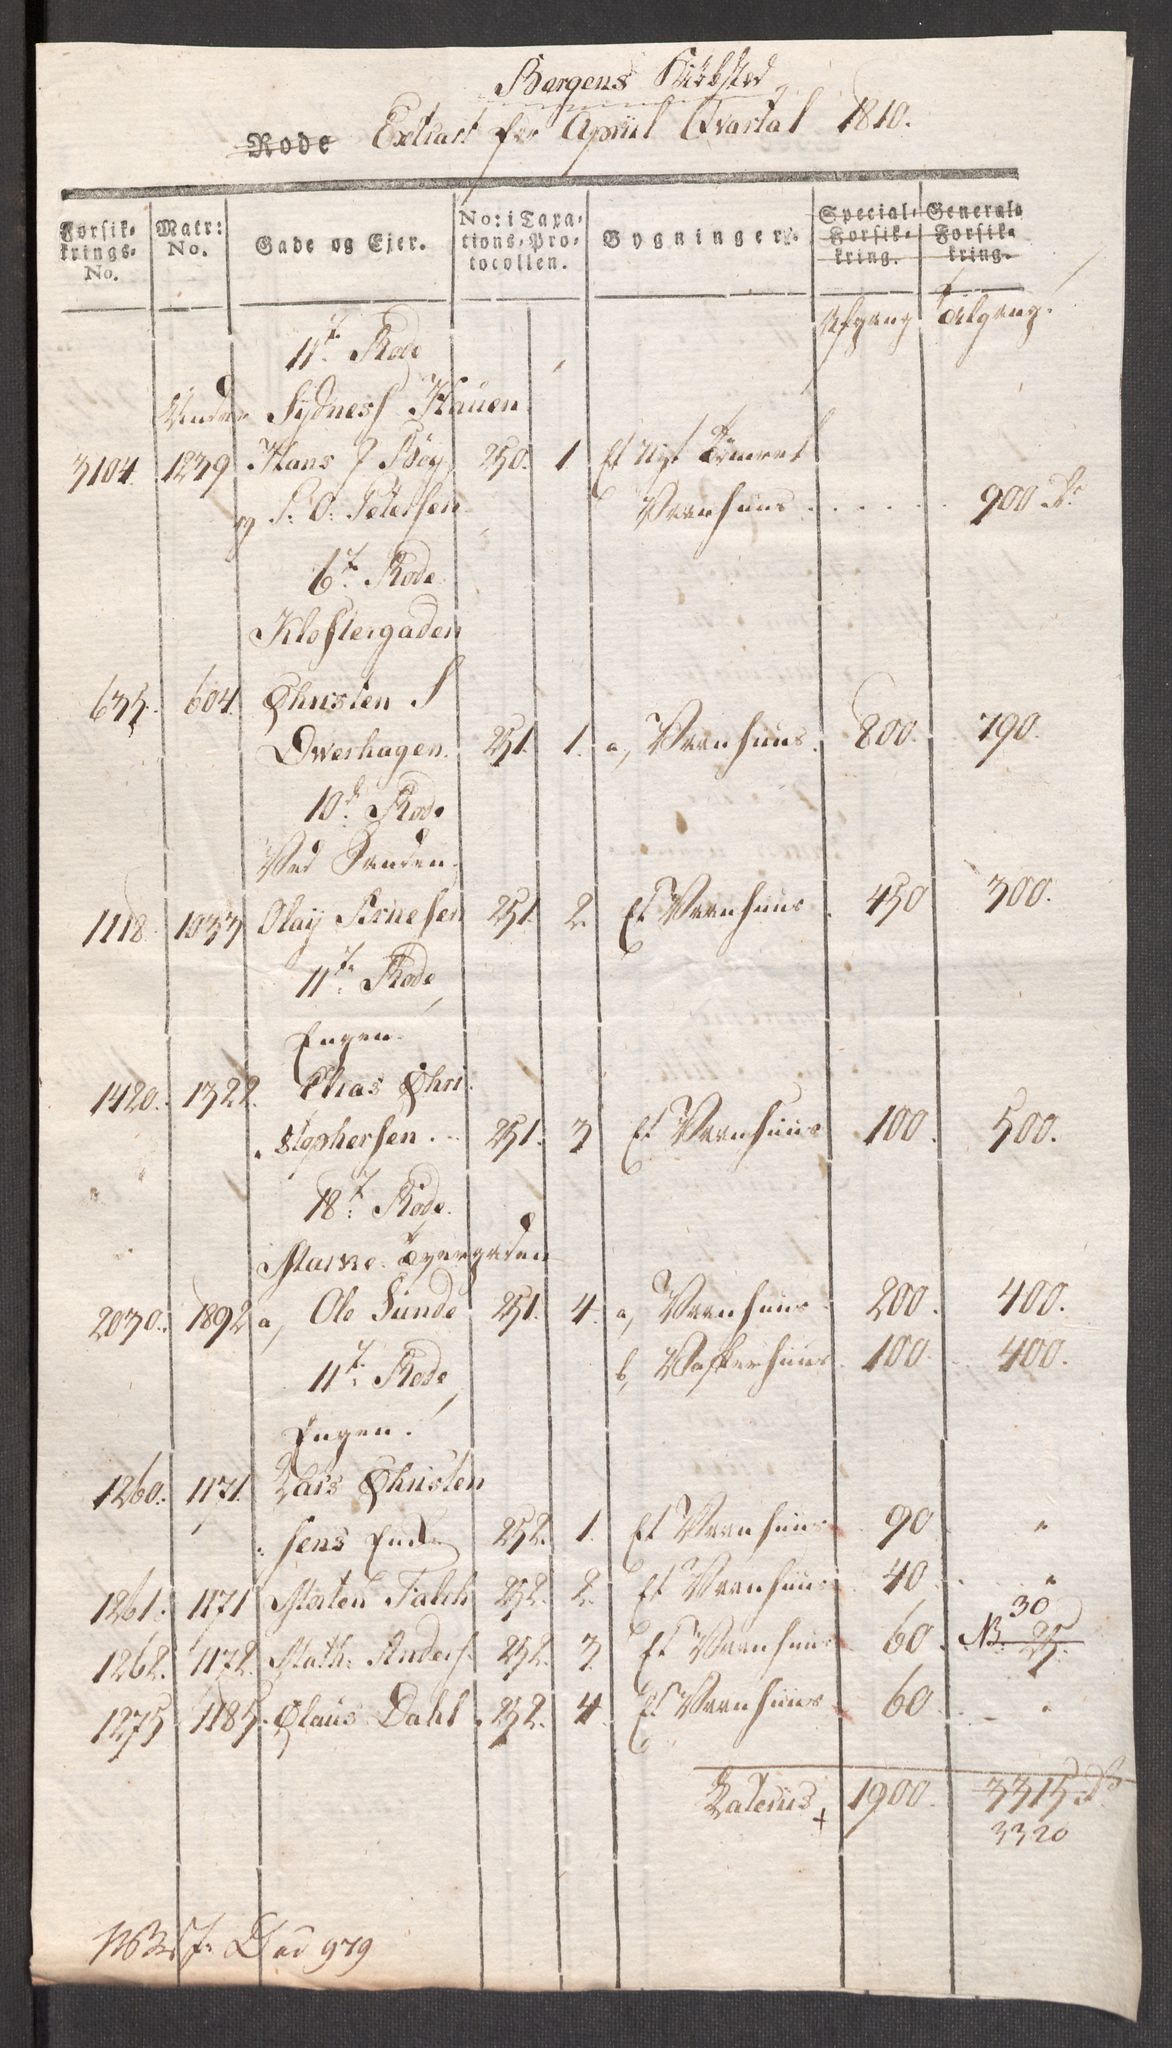 Bergens Kiöbsted
Rode Extract for Apriil Qvartal 1810.
Forsik-krings-No. Matr: No. Gade og Ejer. No: i Taxa-tions-Pro-tocollen. Bygninger. Special-Forsik-kring. General-Forsik-kring.
Afgang Tilgang.
11te Rode
Under Sydness Hauen
3104. 1239 Hans J Böy 250. 1 Et Nyt Tömret
og P: O: Petersen Vaanhuus . . . . . . 900 Rd
6te Rode
Klostergaden
635. 604. Christen S
Owerhagen. 251. 1. a, Vaanhuus. 800. 790.
10de Rode
Ved Sanden.
1118. 1033 Olay Arnesen 251. 2. Et Vaanhuus. 450 300.
11te Rode
Engen.
1420. 1322. Elias Chri
stophersen. 251. 3 Et Vaanhuus 100. 500.
18te Rode.
Marke
2030. 1892 a, Ole Sunde 251. 4. a, Vaanhuus 200. 400.
11te Rode b, Vasherhuus 100. 400.
Engen.
1260. 1171. Lars Christen
sens Enke 252. 1. Et Vaanhuus 90 "
1261. 1171 Morten Falch 252. 2. Et Vaanhuus 40. "
30
1262. 1172. Math: Anders. 252. 3. Et Vaanhuus 60. NB. 25.
1275 1185. Claus Dahl 252. 4. Et Vaanhuus 60 "
Laterus + 1900. 3315 Rd
3320
979